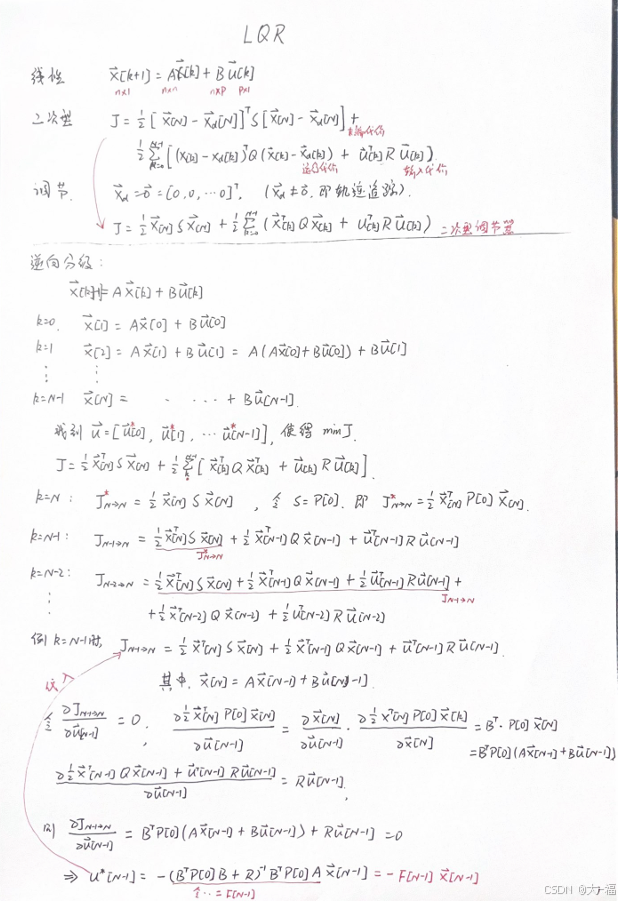 LQR
线性 x⃗[k+1] = Ax⃗[k] + Bu⃗[k]
n×1 n×n n×p p×1
二次型 J = ½[x⃗[N] - x⃗d[N]]ᵀS[x⃗[N] - x⃗d[N]] +
末端代价
½∑ᴺ⁻¹ₖ₌₀[(x⃗[k] - x⃗d[k])ᵀQ(x⃗[k] - x⃗d[k]) + u⃗ᵀ[k]Ru⃗[k])
运行代价 输入代价
调节 x⃗d = 0⃗ = [0,0,⋯0]ᵀ, (x⃗d ≠ 0⃗, 即轨迹追踪).
J = ½x⃗ᵀ[N]Sx⃗[N] + ½∑ᴺ⁻¹ₖ₌₀(x⃗ᵀ[k]Qx⃗[k] + uᵀ[k]Ru⃗[k]) 二次型调节器
逆向分级:
x⃗[k+1] = Ax⃗[k] + Bu⃗[k]
k=0. x⃗[1] = Ax⃗[0] + Bu⃗[0]
k=1 x⃗[2] = Ax⃗[1] + Bu⃗[1] = A(Ax⃗[0]+Bu⃗[0]) + Bu⃗[1]
⋮ ⋮
k=N-1 x⃗[N] = · · ⋯ + Bu⃗[N-1].
找到 u⃗ = [u⃗*[0], u⃗*[1], ⋯ u⃗*[N-1]], 使得 minJ.
J = ½x⃗ᵀ[N]Sx⃗[N] + ½∑ᴺ⁻¹ₖ[x⃗ᵀ[k]Qx⃗[k] + u⃗[k]Ru⃗[k]].
k=N: J*N→N = ½x⃗ᵀ[N]Sx⃗[N], 令 S=P[0]. 即 J*N→N = ½x⃗ᵀ[N]P[0]x⃗[N].
k=N-1: JN-1→N = ½x⃗ᵀ[N]Sx⃗[N] + ½x⃗ᵀ[N-1]Qx⃗[N-1] + u⃗ᵀ[N-1]Ru⃗[N-1]
J*N→N
k=N-2: JN-2→N = ½x⃗ᵀ[N]Sx⃗[N] + ½x⃗ᵀ[N-1]Qx⃗[N-1] + ½u⃗ᵀ[N-1]Ru⃗[N-1] +
JN-1→N
⋮ +½x⃗ᵀ[N-2]Qx⃗[N-2] + ½uᵀ[N-2]Ru⃗[N-2]
例 k=N-1时, JN-1→N = ½x⃗ᵀ[N]Sx⃗[N] + ½x⃗ᵀ[N-1]Qx⃗[N-1] + u⃗ᵀ[N-1]Ru⃗[N-1].
代入 其中, x⃗[N] = Ax⃗[N-1] + Bu⃗[N-1].
令 ∂JN-1→N/∂u⃗[N-1] = 0, ∂½x⃗ᵀ[N]P[0]x⃗[N]/∂u⃗[N-1] = ∂x⃗[N]/∂u⃗[N-1] · ∂½xᵀ[N]P[0]x⃗[k]/∂x⃗[N] = Bᵀ·P[0]x⃗[N]
=BᵀP[0](Ax⃗[N-1]+Bu⃗[N-1])
∂½x⃗ᵀ[N-1]Qx⃗[N-1] + u⃗ᵀ[N-1]Ru⃗[N-1]/∂u⃗[N-1] = Ru⃗[N-1],
则 ∂JN-1→N/∂u⃗[N-1] = BᵀP[0](Ax⃗[N-1] + Bu⃗[N-1]) + Ru⃗[N-1] = 0
⇒ u*[N-1] = -(BᵀP[0]B + R)⁻¹BᵀP[0]A x⃗[N-1] = -F[N-1] x⃗[N-1]
令⋯=F[N-1]
CSDN @大福